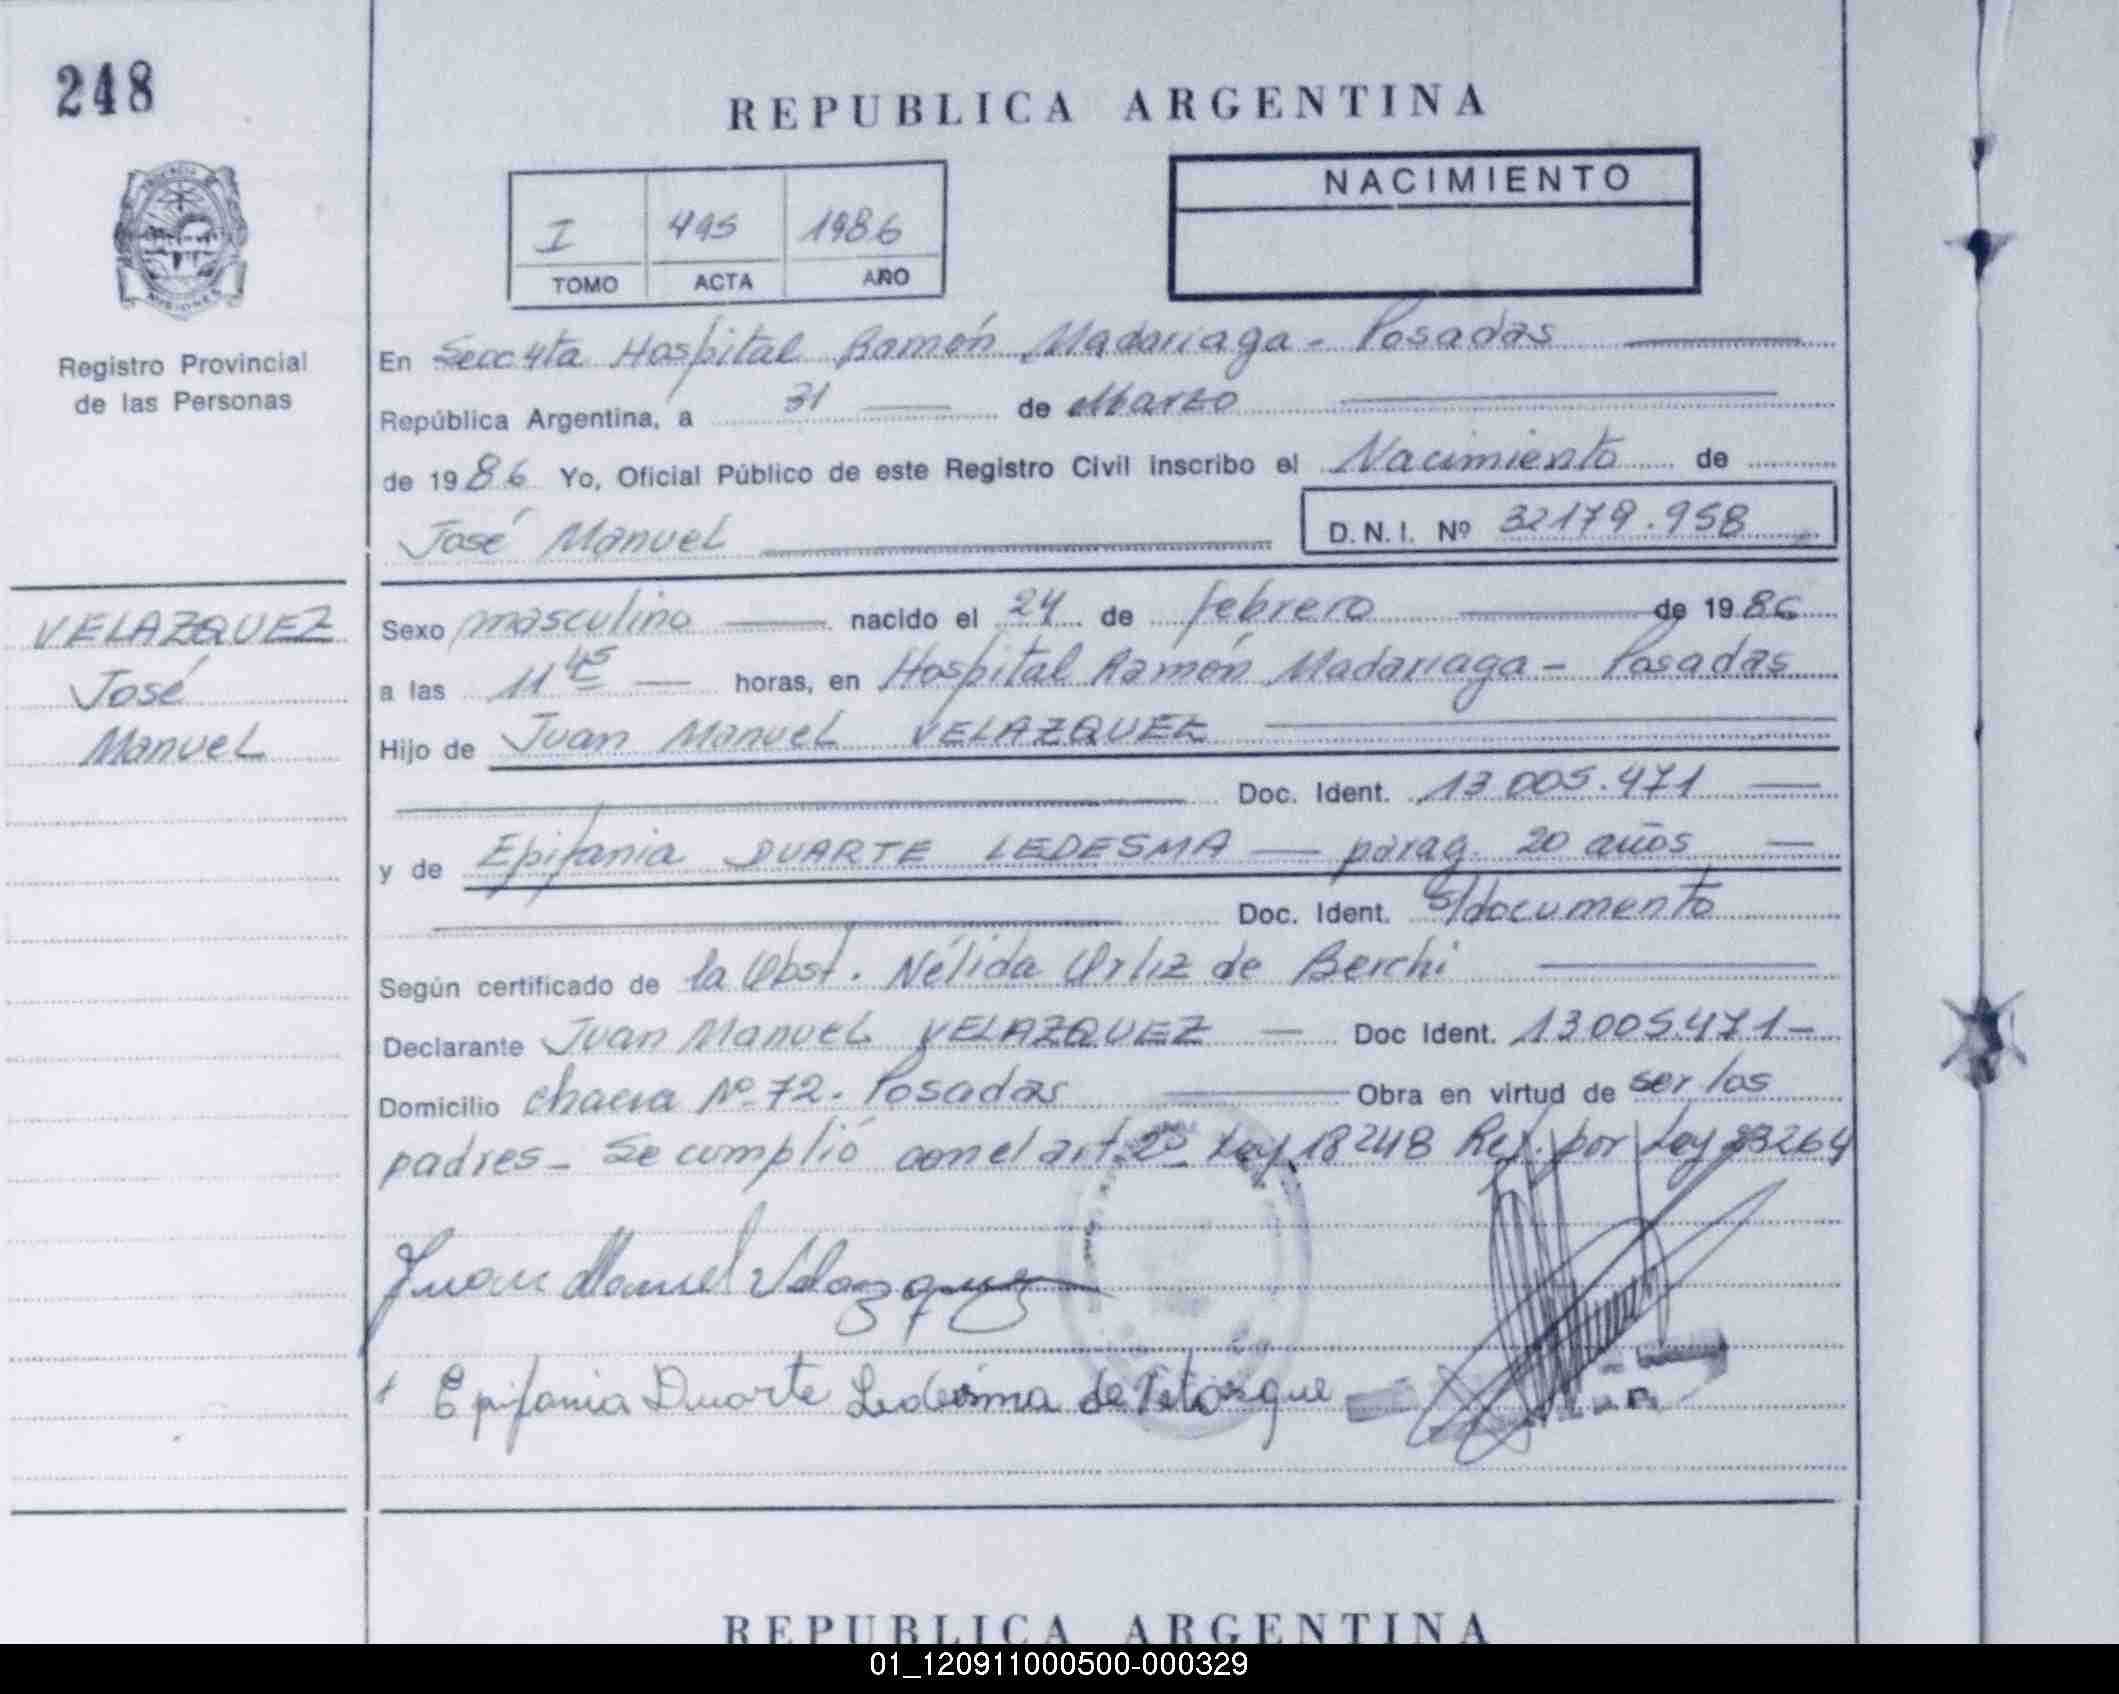 248
REPUBLICA ARGENTINA
NACIMIENTO
I 495 1986
TOMO ACTA AÑO
Registro Provincial
de las Personas
En Secc 4ta Hospital Ramón Madariaga - Posadas
República Argentina, a 31 de Marzo
de 1986 Yo, Oficial Público de este Registro Civil inscribo el Nacimiento de
José Manuel D.N.I. Nº 32179.958
VELAZQUEZ
José
Manuel
Sexo masculino nacido el 24 de febrero de 1986
a las 11 45 horas, en Hospital Ramón Madariaga - Posadas
Hijo de Juan Manuel VELAZQUEZ
Doc. Ident. 13.005.471
y de Epifania DUARTE LEDESMA — parag. 20 años
Doc. Ident. s/documento
Según certificado de la Obst. Nélida Ortiz de Berchi
Declarante Juan Manuel VELAZQUEZ — Doc Ident. 13.005.471 -
Domicilio chacra Nº 72. Posadas Obra en virtud de ser los
padres - Se cumplió con el art. 2º Ley 18248 Ref. por Ley 23264
Juan Manuel Velazquez
Epifania Duarte Ledesma de
REPUBLICA ARGENTINA
01_120911000500-000329